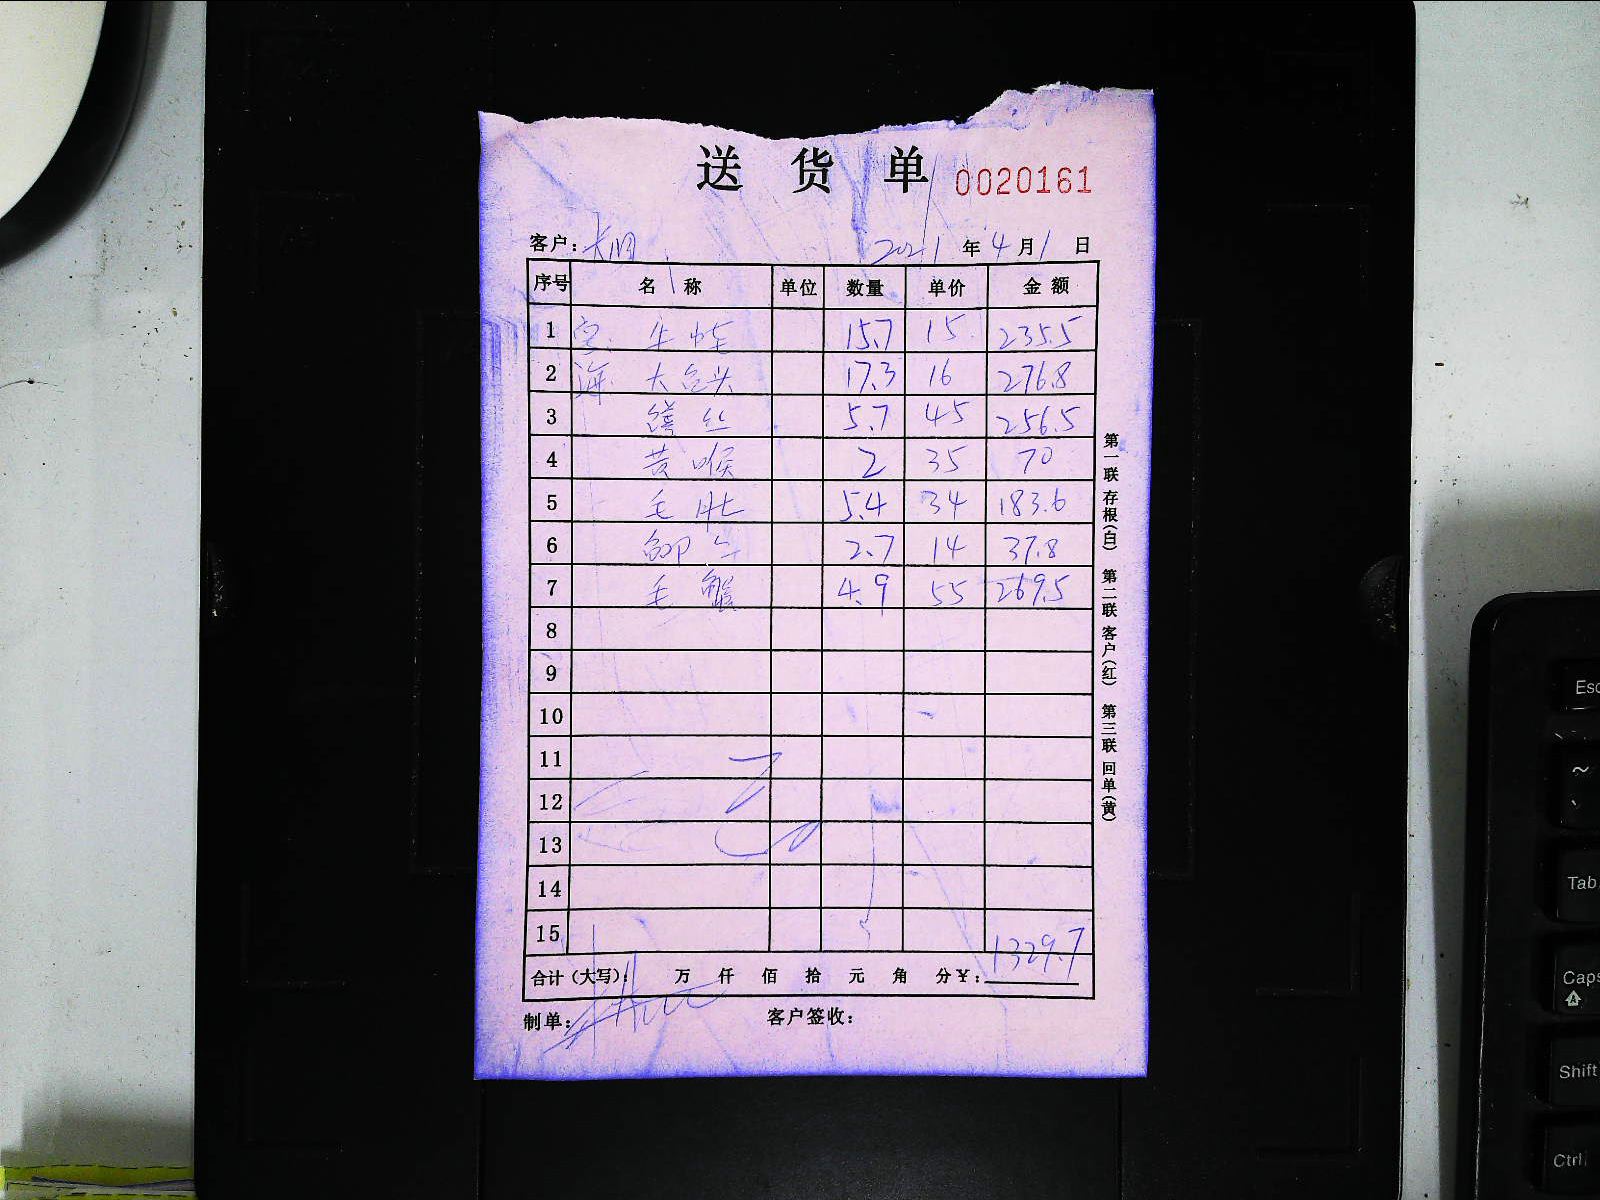 送 货 单 0020161
客户： 2021 年 4 月 1 日
序号 名 称 单位 数量 单价 金 额
1 15.7 15 235.5
2 大 头 17.3 16 276.8
3 丝 5.7 45 256.5
4 黄喉 2 35 70
5 毛肚 5.4 34 183.6
6 2.7 14 37.8
7 毛蟹 4.9 55 269.5
8
9
10
11
12
13
14
15
合计（大写）： 万 仟 佰 拾 元 角 分￥： 1329.7
制单： 客户签收：
第一联 存根（白） 第二联 客户（红） 第三联 回单（黄）
Esc
~
、
Tab
Caps
Shift
Ctrl